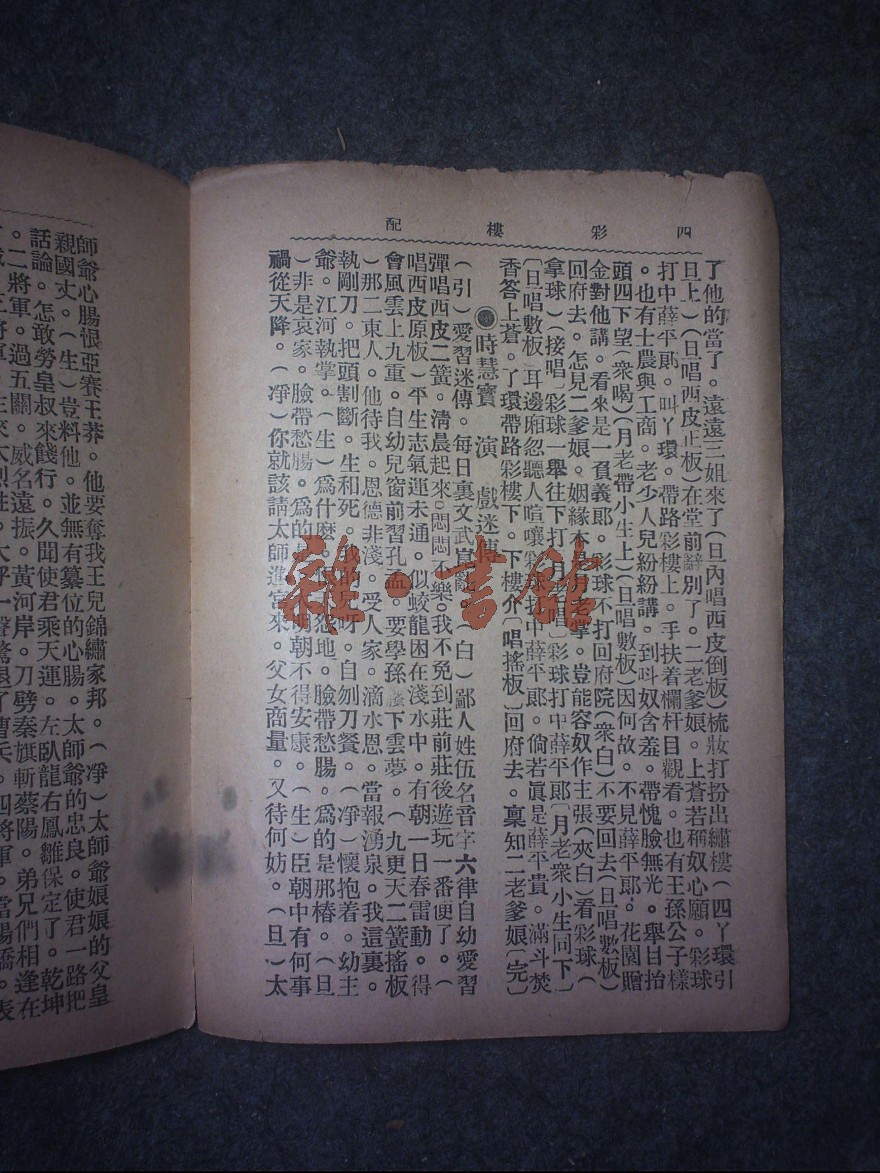 四　彩樓配
了他的當了。遠遠三姐來了（旦內唱西皮倒板）梳妝打扮出繡樓（四丫環引
旦上）（日唱西皮正板）在堂前辭別了。二老爹娘。上蒼若稱奴心願。彩球
打中薛平郎。叫丫環。帶路彩樓上。手扶着欄杆目觀看。也有王孫公子樣
。也有士農與工商。老少人兒紛紛講。到呌奴含羞。帶愧臉無光。舉目抬
頭四下望（衆喝）（月老帶小生上）（日唱數板）因何故。不見薛平郎。花園贈
金對他講。看來是一負義郎。彩球不打回府院（衆白）不要回去（日唱數板）
回府去。怎見二爹娘。姻緣本是月老掌。豈能容奴作主張（夾白）看彩球（
拿球）（接唱）彩球一舉往下打〔月唱〕彩球打中薛平郎〔月老衆小生同下〕
〔日唱數板〕耳邊廂忽聽人喧嚷彩球打中薛平郎。倘若眞是薛平貴。滿斗焚
香答上蒼。了環帶路彩樓下。下樓介〔唱搖板〕回府去。稟知二老爹娘〔完〕
時慧寶　演　戲迷傳
（引）愛習迷傳。每日裏文武崑亂（白）鄙人姓伍名音字六律自幼愛習
彈唱西皮二簧。淸晨起來。悶悶不樂。我不免到莊前莊後遊玩一番便了。（
唱西皮原板）平生志氣運未通。似蛟龍困在淺水中。有朝一日春雷動。得
會風雲上九重。自幼兒窗前習孔孟。要學孫龐下雲夢。（九更天二簧搖板
）那二東人。他待我。恩德非淺。受人家。滴水恩。當報湧泉。我這裏。
執剛刀。把頭割斷。生和死。我的兒呀。自刎刀餐。（凈）懷抱着。幼主
爺。江河執掌。（生）爲什麼。恨怨地。臉帶愁腸。爲的是那樁。（旦
）非是哀家。臉帶愁腸。爲的是明朝不得安康。（生）臣朝中有何事
禍從天降。（凈）你就該請太師進宮來。父女商量。又待何妨。（旦）太
師爺心腸恨亞賽王莽。他要奪我王兒錦繡家邦。（凈）太師爺娘娘的父皇
親國丈。（生）豈料他。並無有纂位的心腸。太師爺的忠良。使君一路把
話論。怎敢勞皇叔來餞行。久聞使君乘天運。左臥龍右鳳雛保定了。乾坤
。二將軍。過五關。威名遠振。黃河岸。刀劈秦旗斬蔡陽。弟兄們相逢在
雜·書館